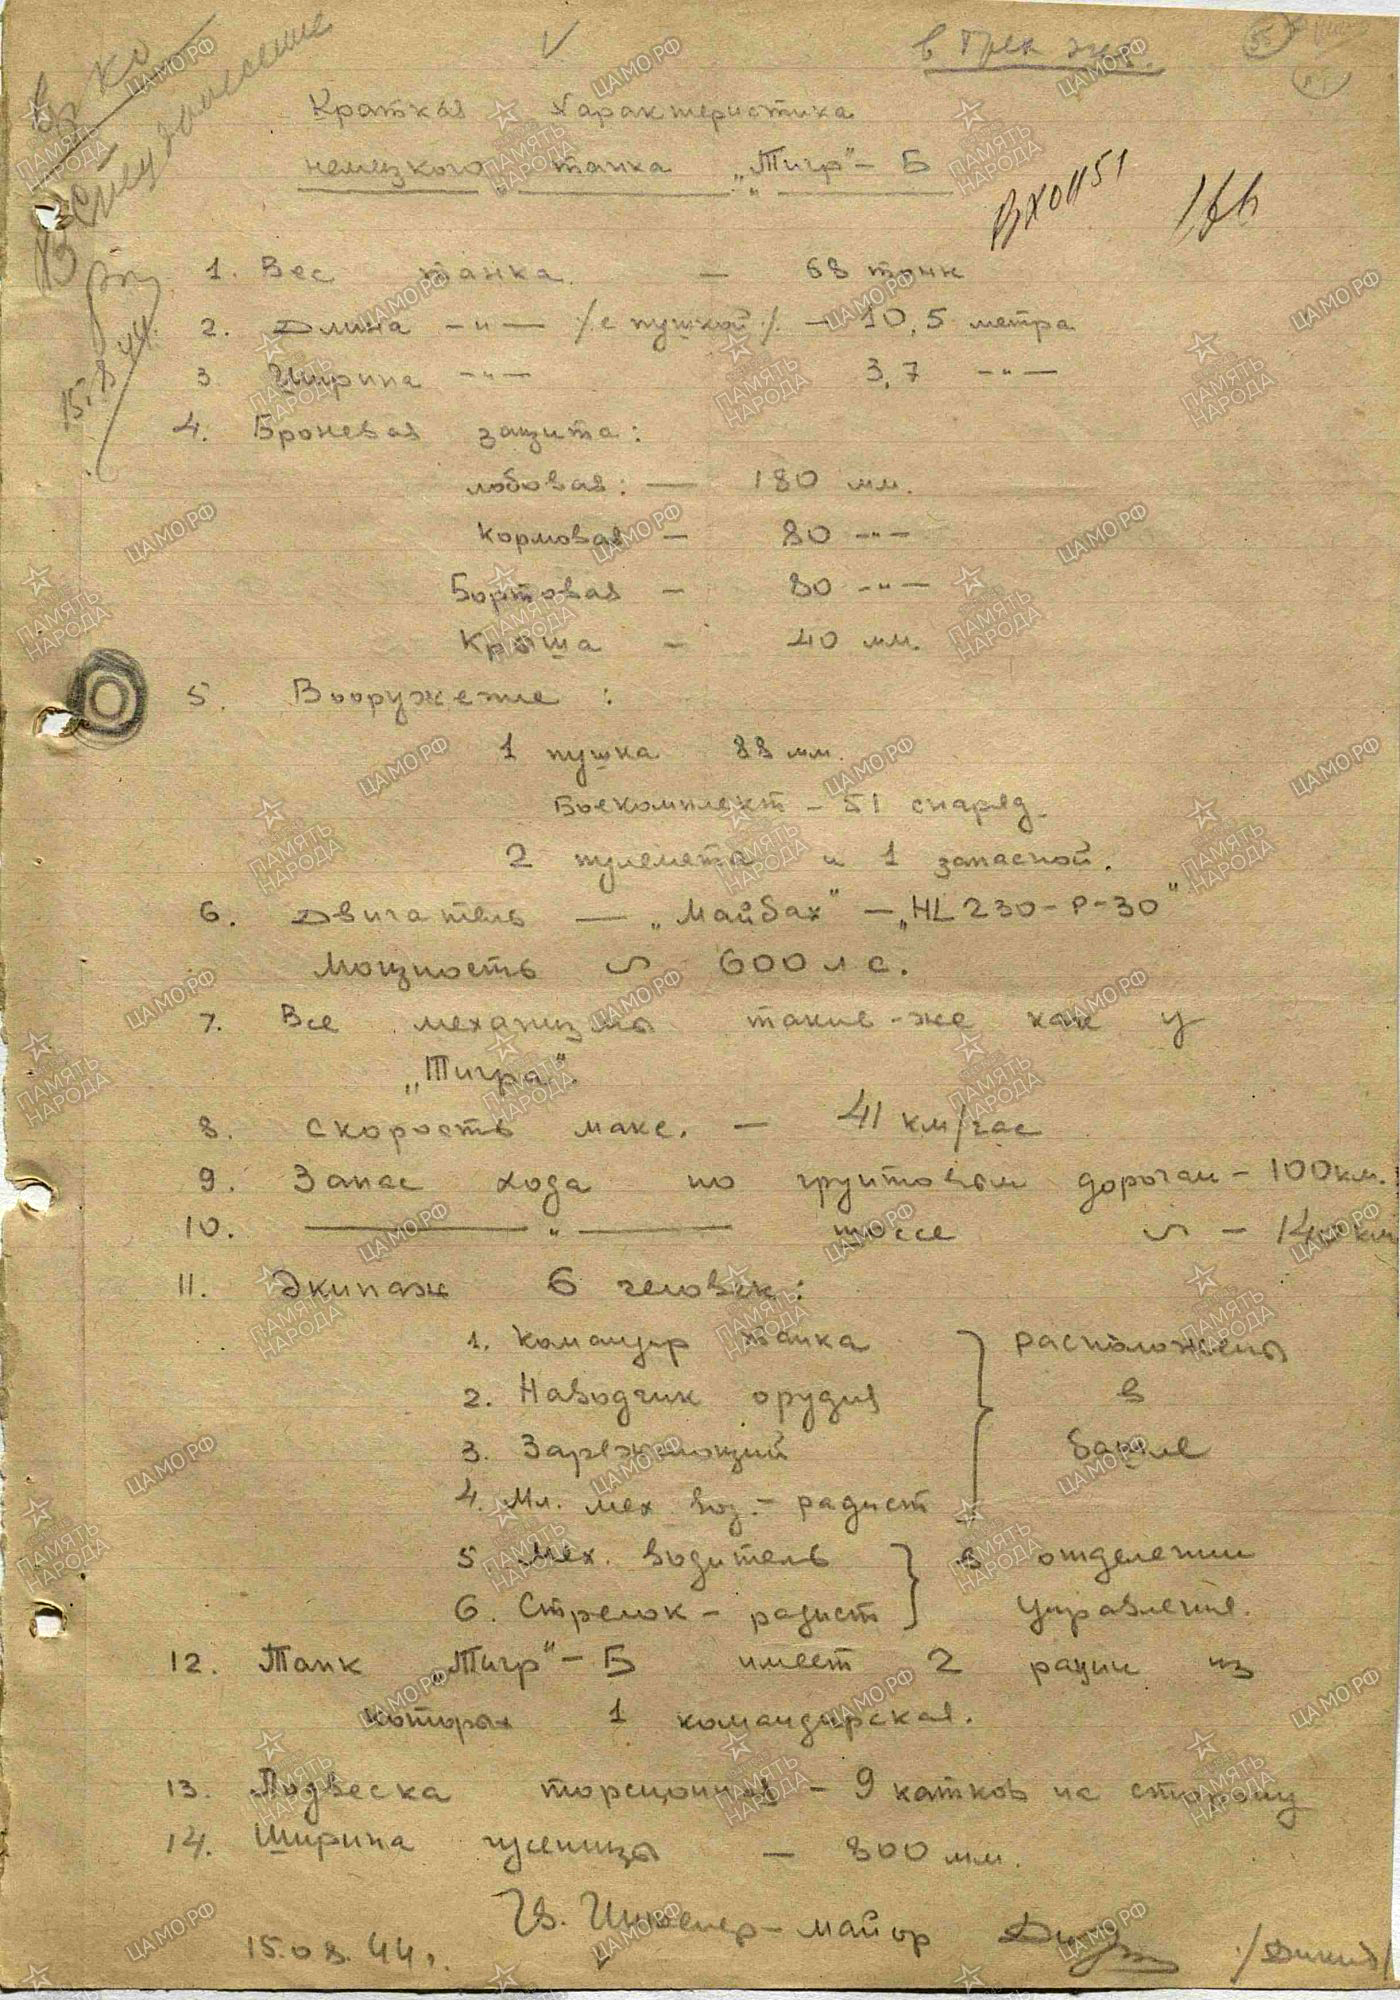 в трех экз.
В спецдонесение
15.8.44.
Краткая характеристика
немецкого танка „Тигр"-Б
ВХ01151
1. Вес танка — 68 тонн
2. Длина -"- /с пушкой/ - 10,5 метра
3. Ширина -"- 3,7 -"-
4. Броневая защита:
лобовая: — 180 мм.
Кормовая — 80 -"-
Бортовая — 80 -"-
Крыша — 40 мм.
5. Вооружение:
1 пушка 88 мм.
Боекомплект - 51 снаряд.
2 пулемета и 1 запасной.
6. Двигатель — „Майбах" - „HL 230-P-30"
Мощность ~ 600 л с.
7. Все механизмы такие-же как у
„Тигра".
8. Скорость макс. — 41 км/час
9. Запас хода по грунтовым дорогам - 100 км.
10. —"— шоссе ~ - 140 км
11. Экипаж 6 человек:
1. Командир танка } расположены
2. Наводчик орудия в
3. Заряжающий башне
4. Мл. мех вод. - радист
5 Мех. водитель } в отделении
6. Стрелок - радист управления.
12. Танк „Тигр"-Б имеет 2 рации из
которых 1 командирская.
13. Подвеска торсионная - 9 катков на сторону
14. Ширина гусеницы — 800 мм.
Гв. Инженер-майор
15.08.44г.
ПАМЯТЬ НАРОДА
ЦАМО.РФ